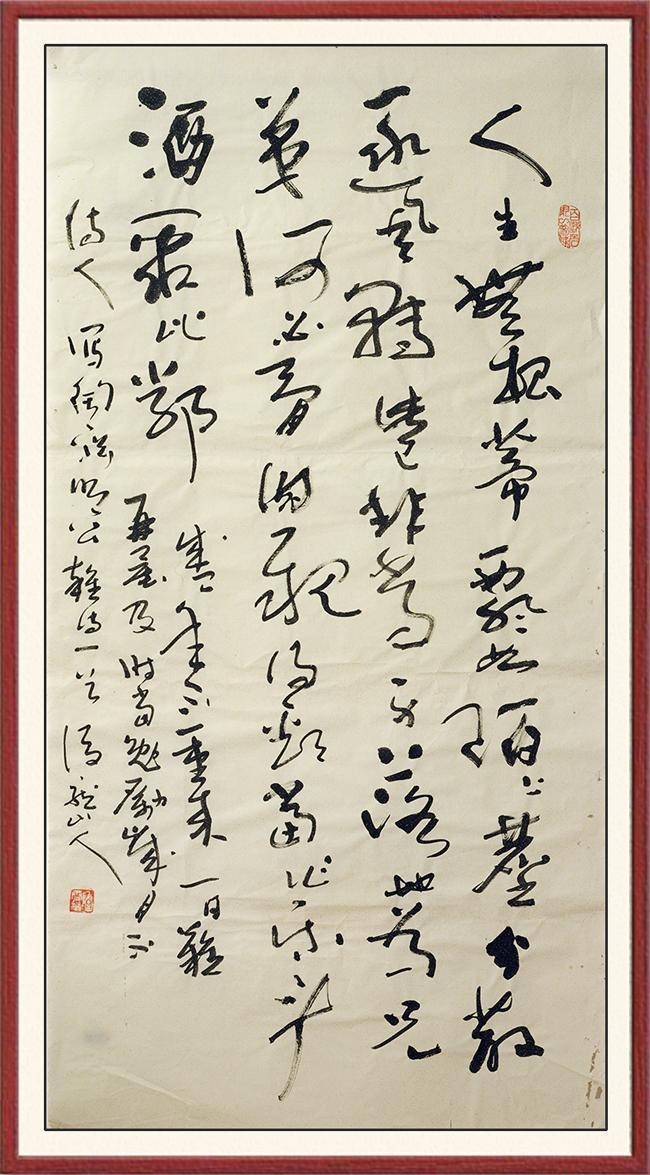 人生無根蒂飄如陌上塵分散
逐風轉此已非常身落地為兄
弟何必骨肉親得歡當作樂斗
酒聚比鄰
盛年不重來一日難
再晨及時當勉勵歲月不
待人 寫陶淵明公雜詩一首 山人